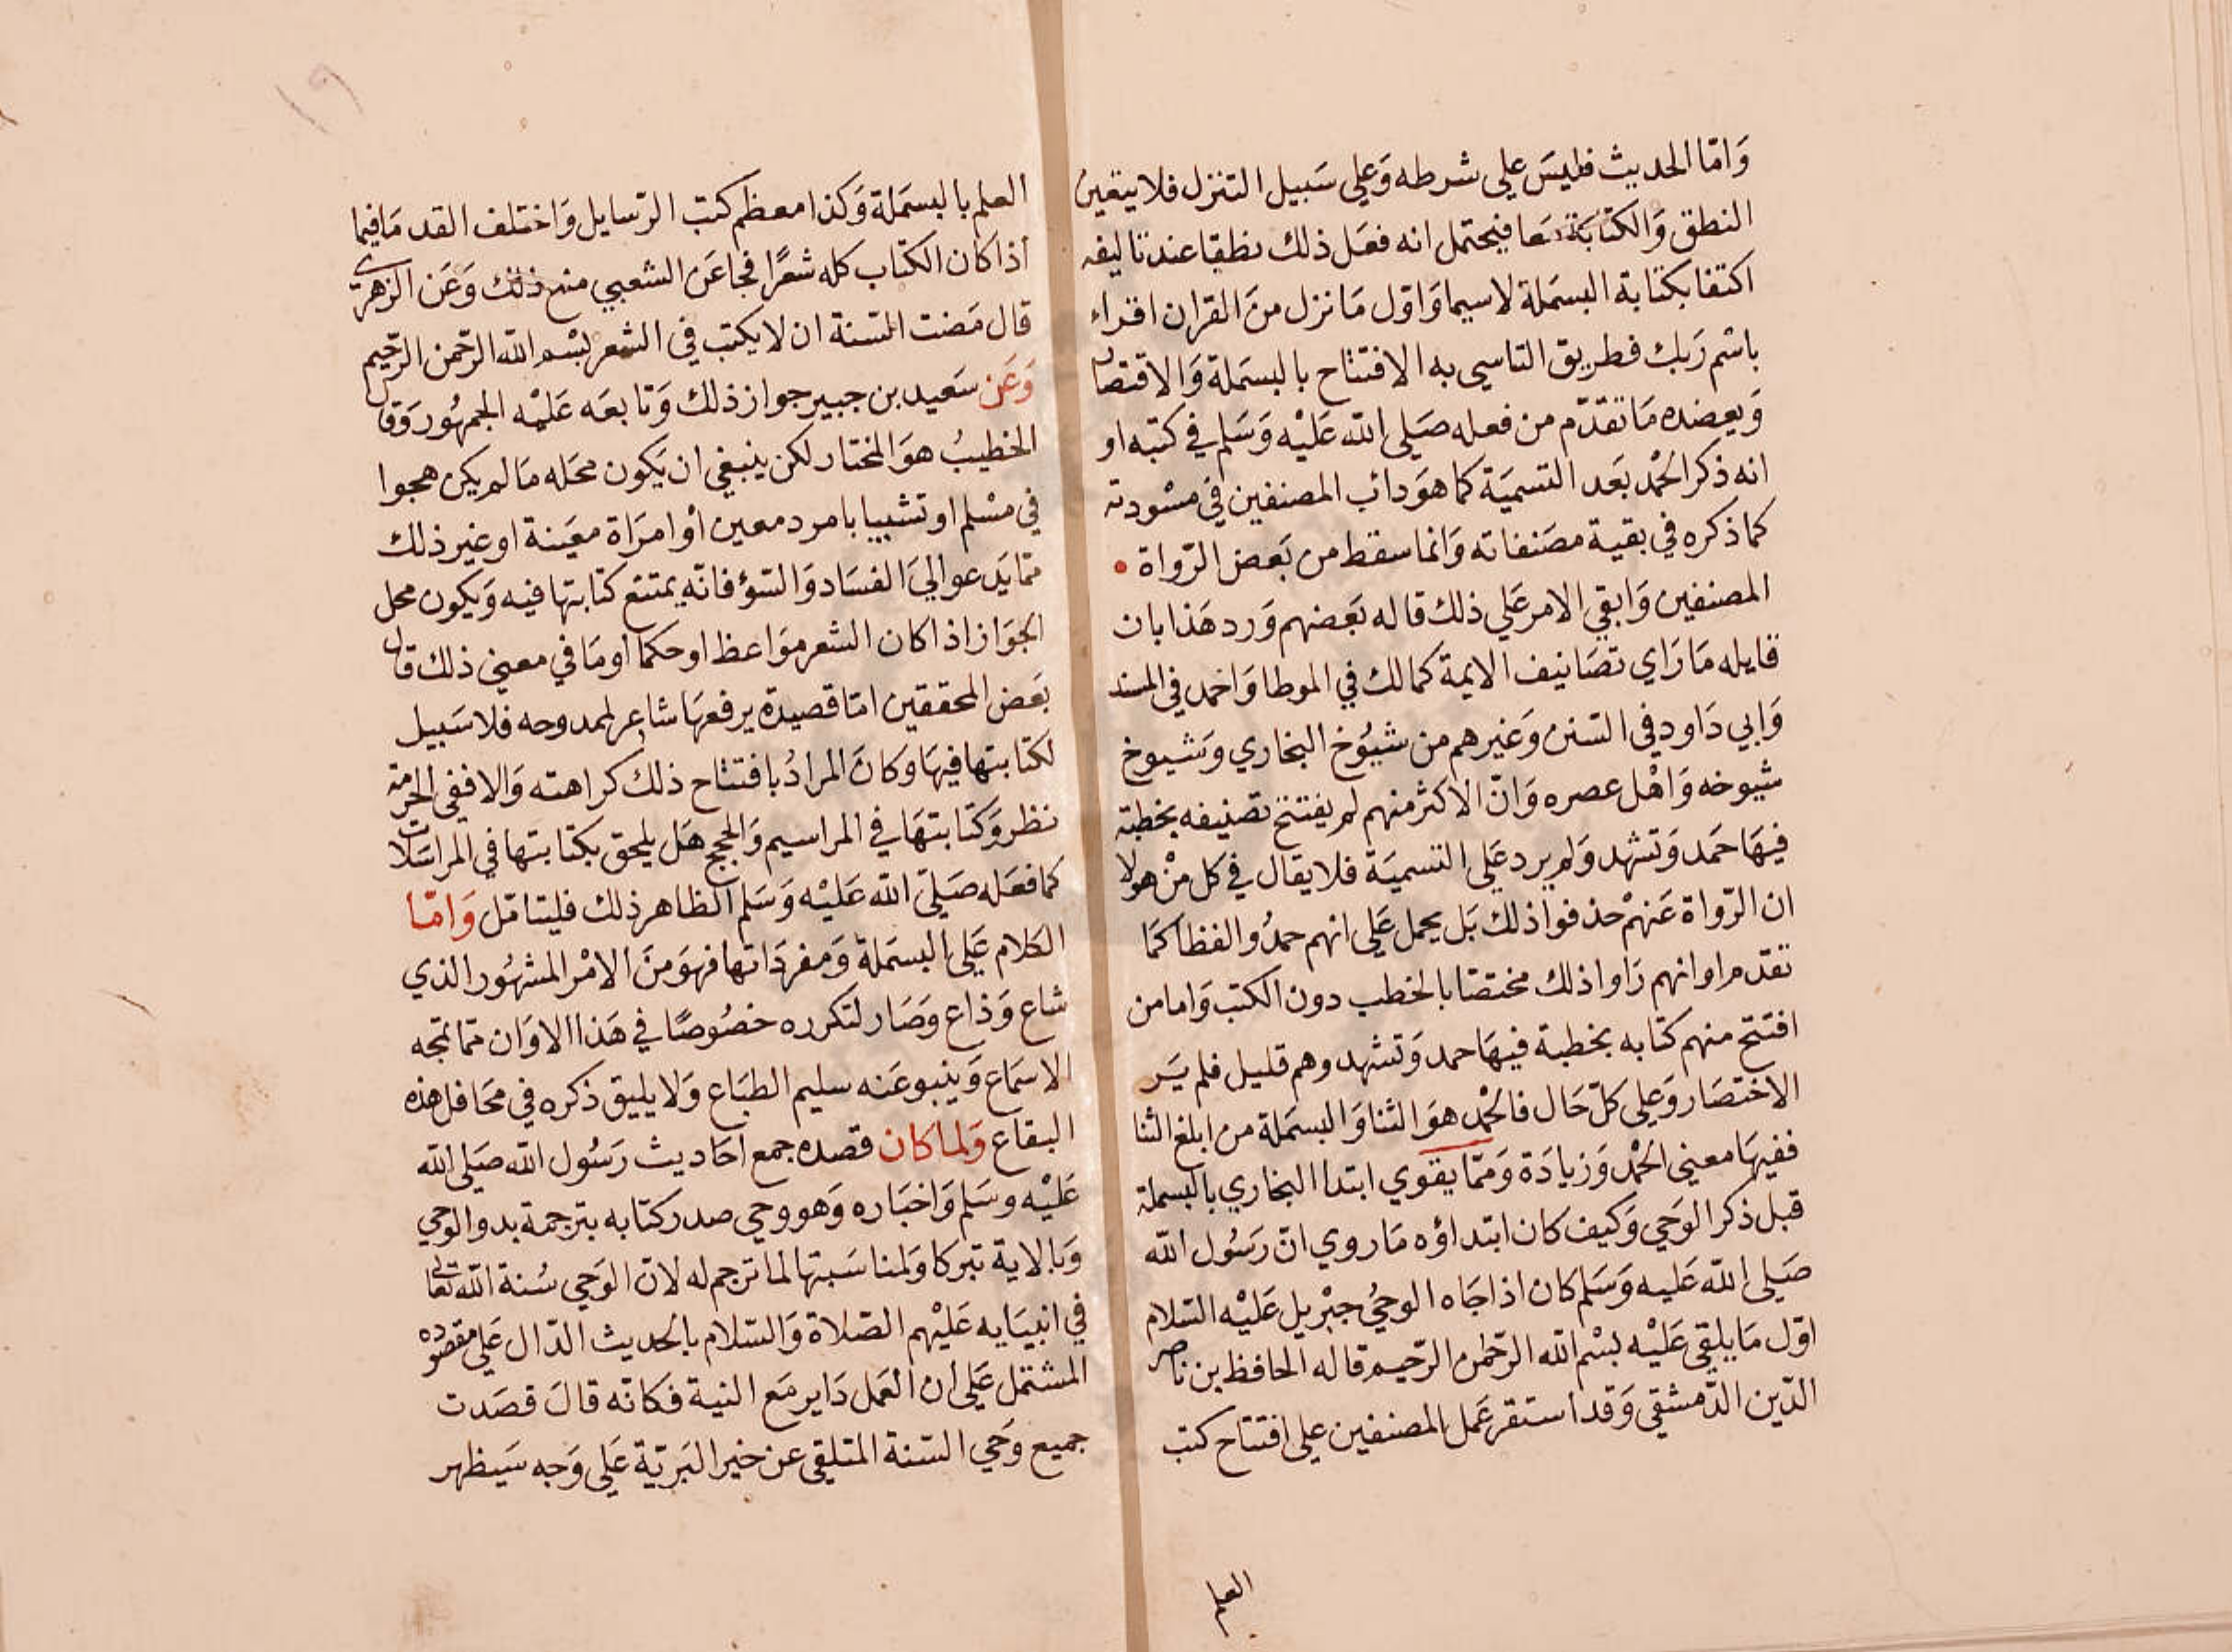 وَامّا الحديث فليسَ علي شرطه وَعلي سَبيل التنزل فلا يتعين
النطق وَالكتابة معا فيحتمل انه فعَل ذلك نطقا عند تاليفه
اكتفا بكتابة البسمَلة لاسيما وَاوّل مَا نزل منَ القران اقراء
باسْم رَبك فطريق التاسي به الافتتاح بالبسمَلة وَالاقتصار
وَيعضده مَا تقدّم من فعله صَلي الله عَليْه وَسَلم في كتبه او
انه ذكر الحْمد بَعد التسميَة كما هوَ داب المصنفين في مسْودته
كما ذكره في بقية مصَنفاته وَانما سقط من بَعض الرّواة •
المصنفين وَابقي الامر عَلي ذلك قاله بَعضهم وَرد هَذا بان
قايله مَا رَاي تصَانيف الايمة كمالك في الموطا وَاحمد في المسند
وَابي دَاود في السّنن وَغيرهم من شيُوخ البخاري وَشيوخ
شيوخه وَاهْل عصره وَانّ الاكثر منهم لم يفتتح تصنيفه بخطبة
فيهَا حَمد وَتشهد وَلم يرد عَلي التسميَة فلا يقال في كل منْ هولا
ان الرّواة عَنهمْ حذفوا ذلك بَل يحمل عَلي انهم حمدُوا لفظا كمَا
تقدم اوانهم رَاوا ذلك مختصّا بالخطب دون الكتب وَاما من
افتتح منهم كتابه بخطبة فيهَا حمد وَتشهد وهم قليل فلم يَر
الاختصَار وَعلي كلّ حَال فالحْمد هوَ الثنا وَالبسمَلة من ابلغ الثنا
ففيهَا معني الحْمد وَزيادَة وَممّا يقوي ابتدا البخاري بالبسملة
قبل ذكر الوَحي وَكيف كان ابتداؤه مَا روي انّ رَسُول الله
صَلي الله عَليه وَسَلم كان اذا جَاه الوحيُ جبْريل عَليْه السّلام
اوّل مَا يلقي عَليْه بسْم الله الرّحمن الرّحيم قاله الحافظ بن ناصر
الدّين الدّمشقي وَقد استقر عَمل المصنفين علي افتتاح كتب
العلم
١٩
العلم بالبسمَلة وَكذا معظم كتب الرّسايل وَاختلف القدمَا فيما
اذا كان الكتاب كله شعرًا فجا عَن الشعبي منع ذلك وَعَن الزهريّ
قال مَضت السّنة ان لا يكتب في الشعر بسْم الله الرّحمن الرّحيم
وَعَن سَعيد بن جبير جواز ذلك وَتابعَه عَليْه الجمهُور وَقال
الخطيبُ هوَ المختار لكن ينبغي ان يَكون محَله مَا لم يكن هجوا
في مسْلم او تشبيبا بامرد معين اوْ امرَاة معيَنة او غير ذلك
ممّا يَدعوا اليَ الفسَاد وَالسّؤ فانّه يمتنع كتابتها فيه وَيكون محل
الجوَاز اذا كان الشعر موَاعظ او حكما اوْ مَا في معني ذلك قال
بَعض المحققين امّا قصيدة يرفعهَا شاعر لممدوحه فلا سَبيل
لكتابتها فيهَا وكانَ المرادُ بافتتاح ذلك كراهته وَالا ففي الحرمة
نظر وَكتابتهَا في المراسيم وَالحجج هَل يلحق بكتابتها في المراسَلات
كما فعَله صَلي الله عَليْه وَسَلم الظاهر ذلك فليتامّل وَامّا
الكلام عَلي البسمَلة وَمفردَاتها فهوَ منَ الامْر المشهُور الذي
شاع وَذاع وَصَار لتكرره خصُوصًا في هَذا الاوَان ممّا تمجه
الاسمَاع وَينبو عَنه سليم الطبَاع وَلا يليق ذكره في محَافل هذه
البقاع وَلما كان قصده جمع احَاديث رَسُول الله صَلي الله
عَليْه وسَلم وَاخبَاره وَهو وحي صدر كتابه بترجمة بدو الوحي
وَبالاية تبركا وَلمناسَبتها لما ترجم له لانّ الوَحي سُنة الله تعالي
في انبيَايه عَليْهم الصّلاة وَالسّلام بالحديث الدّال عَلي مقصوده
المشتمل عَلي ان العَمل دَاير مَع النية فكانّه قالَ قصَدت
جميع وَحي السّنة المتلقي عن خير البَريّة عَلي وَجه سَيظهر